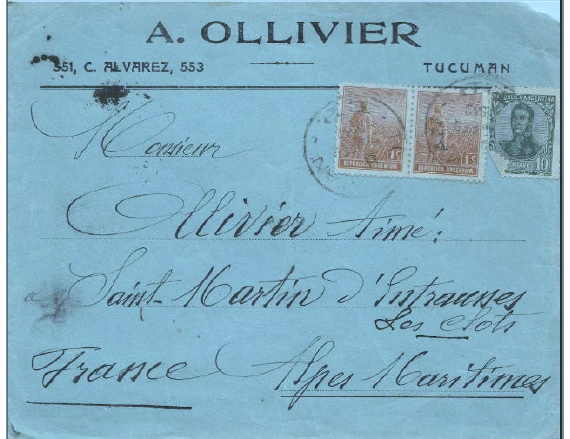 A. OLLIVIER
551, C. ALVAREZ, 553
TUCUMAN
1c
REPUBLICA ARGENTINA
1c
REPUBLICA ARGENTINA
10
Monsieur
Ollivier Aimé:
à Saint-Martin d'Entraunes
Les Clots
France Alpes Maritimes